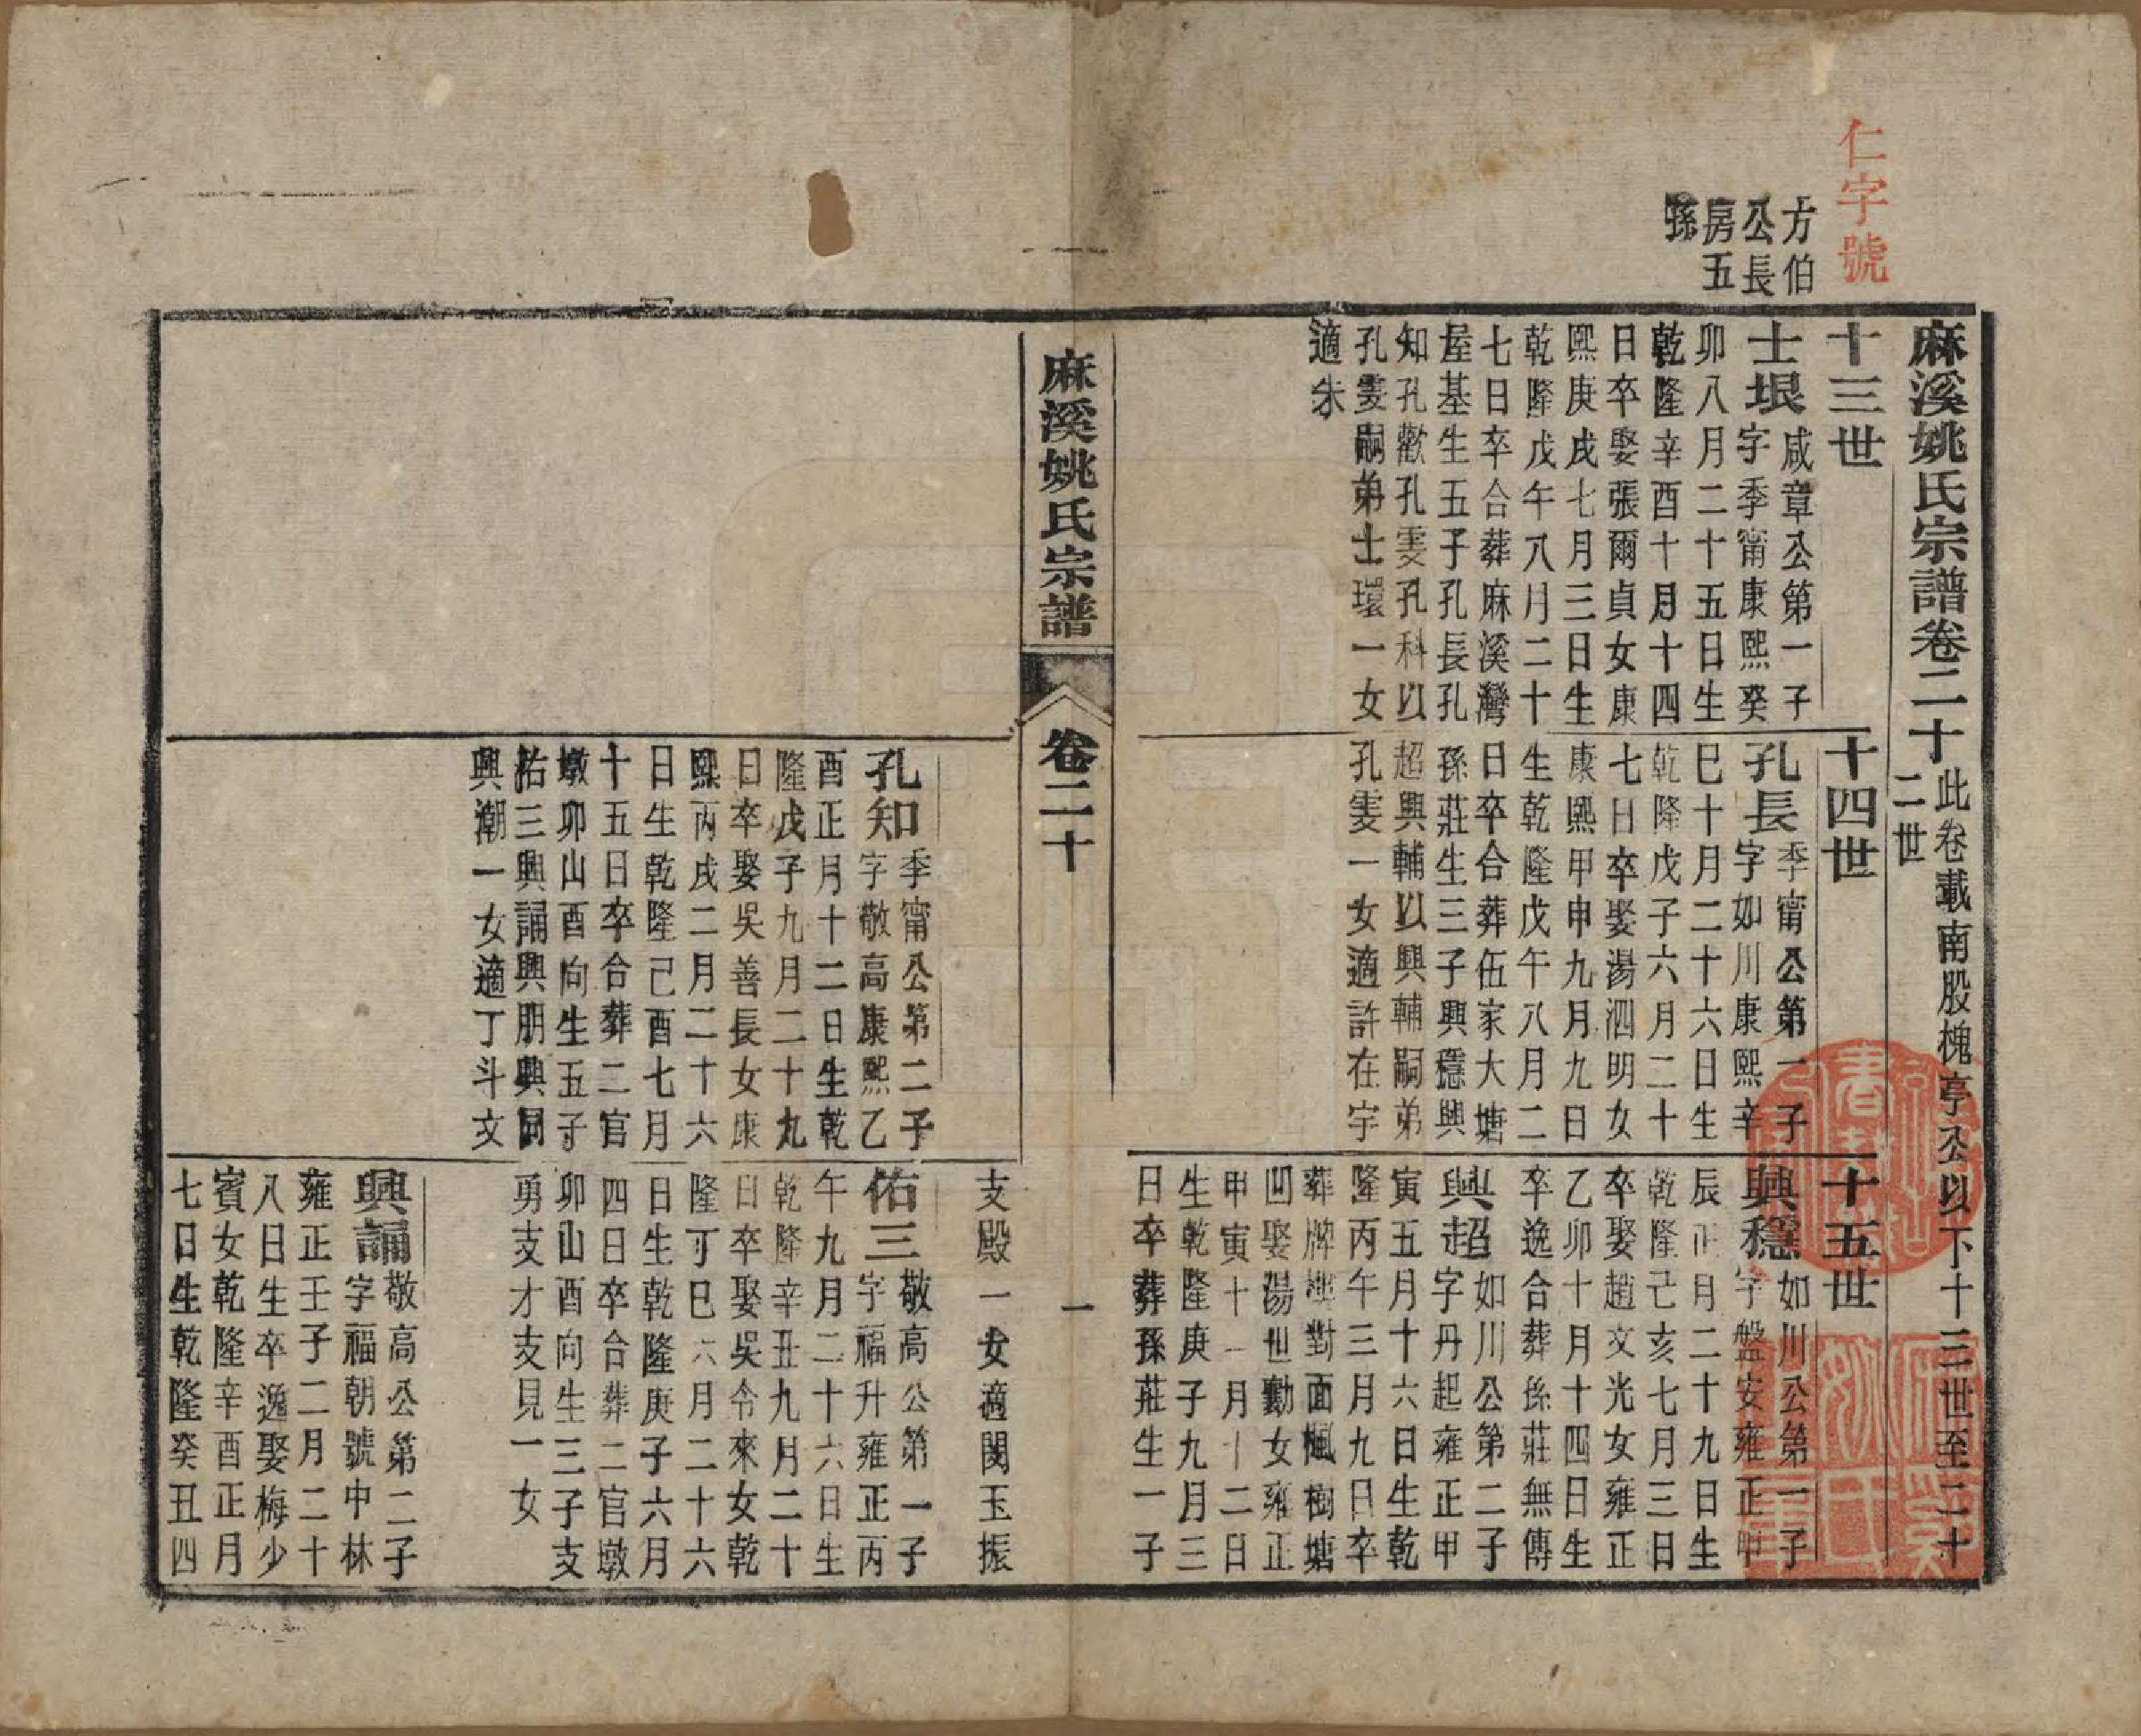 仁字號
方伯
公長
房五
孫
麻溪姚氏宗譜卷二十
此卷載南股槐亭公以下十三世至二十
二世
十三世
士垠
咸章公第一子
字季甯康熙癸
卯八月二十五日生
乾隆辛酉十月十四
日卒娶張爾貞女康
熙庚戌七月三日生
乾隆戊午八月二十
七日卒合葬麻溪灣
屋基生五子孔長孔
知孔歡孔雯孔科以
孔雯嗣弟士環一女
適朱
十四世
孔長
季甯公第一子
字如川康熙辛
巳十月二十六日生
乾隆戊子六月二十
七日卒娶湯泗明女
康熙甲申九月九日
生乾隆戊午八月二
日卒合葬伍家大塘
孫莊生三子興穩興
超興輔以興輔嗣弟
孔雯一女適許在宇
十五世
興穩
如川公第一子
字盤安雍正甲
辰正月二十九日生
乾隆己亥七月三日
卒娶趙文光女雍正
乙卯十月十四日生
卒逸合葬孫莊無傳
興超
如川公第二子
字丹起雍正甲
寅五月十六日生乾
隆丙午三月九日卒
葬牌樓對面楓樹塘
凹娶湯世勳女雍正
甲寅十一月十二日
生乾隆庚子九月三
日卒葬孫莊生一子
麻溪姚氏宗譜
卷二十
一
支殿一女適閔玉振
孔知
季甯公第二子
字敬高康熙乙
酉正月十二日生乾
隆戊子九月二十九
日卒娶吳善長女康
熙丙戌二月二十六
日生乾隆己酉七月
十五日卒合葬二官
墩卯山酉向生五子
祐三興誦興朋興同
興潮一女適丁斗文
佑三
敬高公第一子
字福升雍正丙
午九月二十六日生
乾隆辛丑九月二十
日卒娶吳令來女乾
隆丁巳六月二十六
日生乾隆庚子六月
四日卒合葬二官墩
卯山酉向生三子支
勇支才支見一女
興誦
敬高公第二子
字福朝號中林
雍正壬子二月二十
八日生卒逸娶梅少
賓女乾隆辛酉正月
七日生乾隆癸丑四